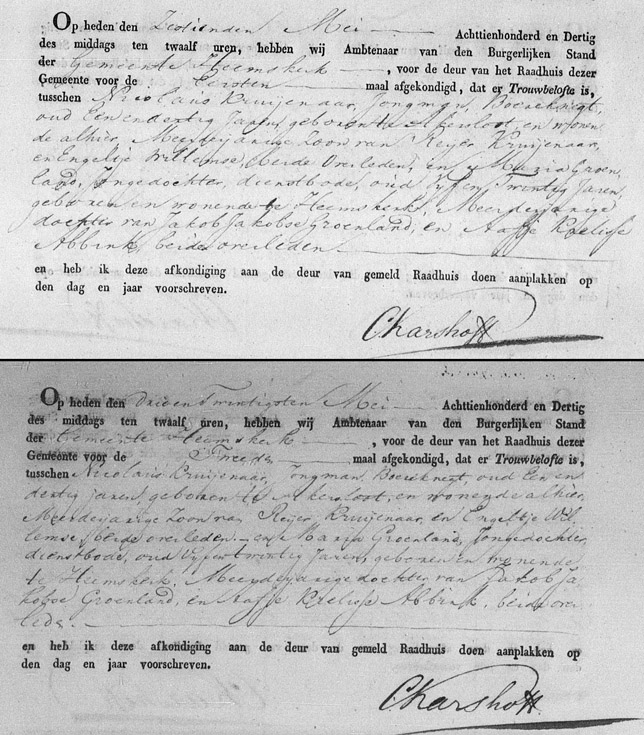 Op heden den Zestienden Mei Achttienhonderd en Dertig
des middags ten twaalf uren, hebben wij Ambtenaar van den Burgerlijken Stand
der Gemeente Heemskerk, voor de deur van het Raadhuis dezer
Gemeente voor de Eersten maal afgekondigd, dat er Trouwbelofte is,
tusschen Nicolaus Kruijenaar, Jongman, Boereknegt,
oud Een en dertig Jaren, geboren te Akersloot, en wonen
de alhier, Meerdejarige Zoon van Reijer Kruijenaar,
en Engeltje Willemse, beide Overleden, en Marija Groen
land, Jongedochter, dienstbode, oud Vijf en Twintig Jaren,
geboren en wonende te Heemskerk, Meerdejarige
dochter van Jakob Jakobse Groenland, en Aafje Krelisse
Abbink, beide overleden
en heb ik deze afkondiging aan de deur van gemeld Raadhuis doen aanplakken op
den dag en jaar voorschreven.
CKarshoff
Op heden den Drie en Twintigsten Mei Achttienhonderd en Dertig
des middags ten twaalf uren, hebben wij Ambtenaar van den Burgerlijken Stand
der Gemeente Heemskerk, voor de deur van het Raadhuis dezer
Gemeente voor de Tweede maal afgekondigd, dat er Trouwbelofte is,
tusschen Nicolaus Kruijenaar, Jongman, Boereknegt, oud Een en
dertig jaren, geboren te Akersloot, en wonende alhier,
Meerdejarige Zoon van Reijer Kruijenaar, en Engeltje Wil
lemse, beide overleden, en Marija Groenland, Jongedochter,
dienstbode, oud vijf en twintig Jaren, geboren en wonende
te Heemskerk, Meerdejarige dochter van Jakob Ja
kobse Groenland, en Aafje Krelisse Abbink, beide over
leden.
en heb ik deze afkondiging aan de deur van gemeld Raadhuis doen aanplakken op
den dag en jaar voorschreven.
CKarshoff